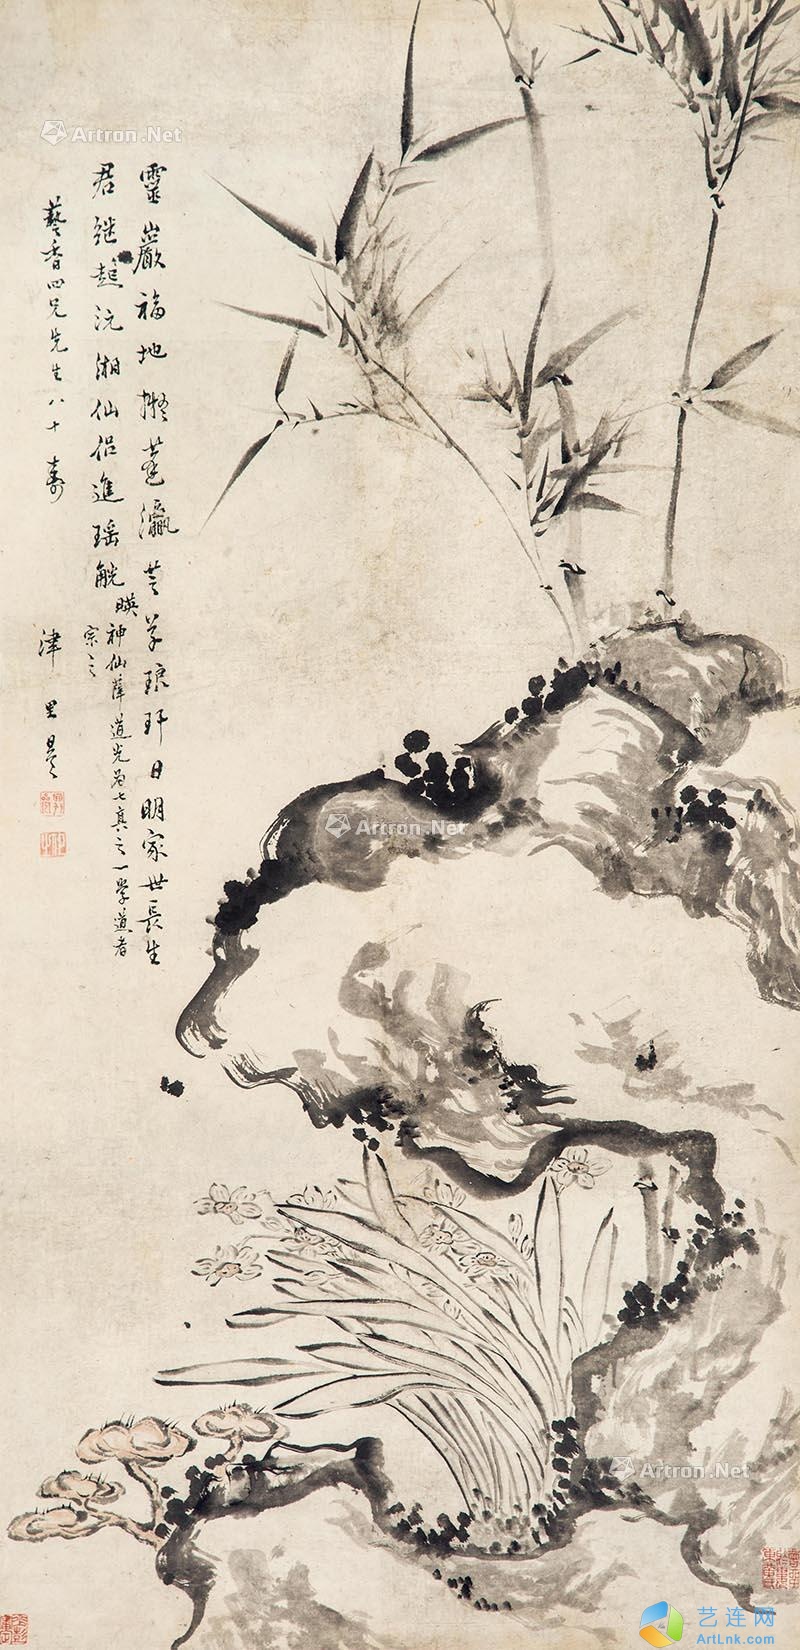 靈巖福地擬蓬瀛芝草琅玕日明家世長生
君继起沅湘仙侣進瑶觥
暎神仙薛道光為七真之一學道者
宗之
藝香四兄先生八十壽
津里曇
Artron.Net
Artron.Net
Artron.Net
艺连网
ArtLnk.com